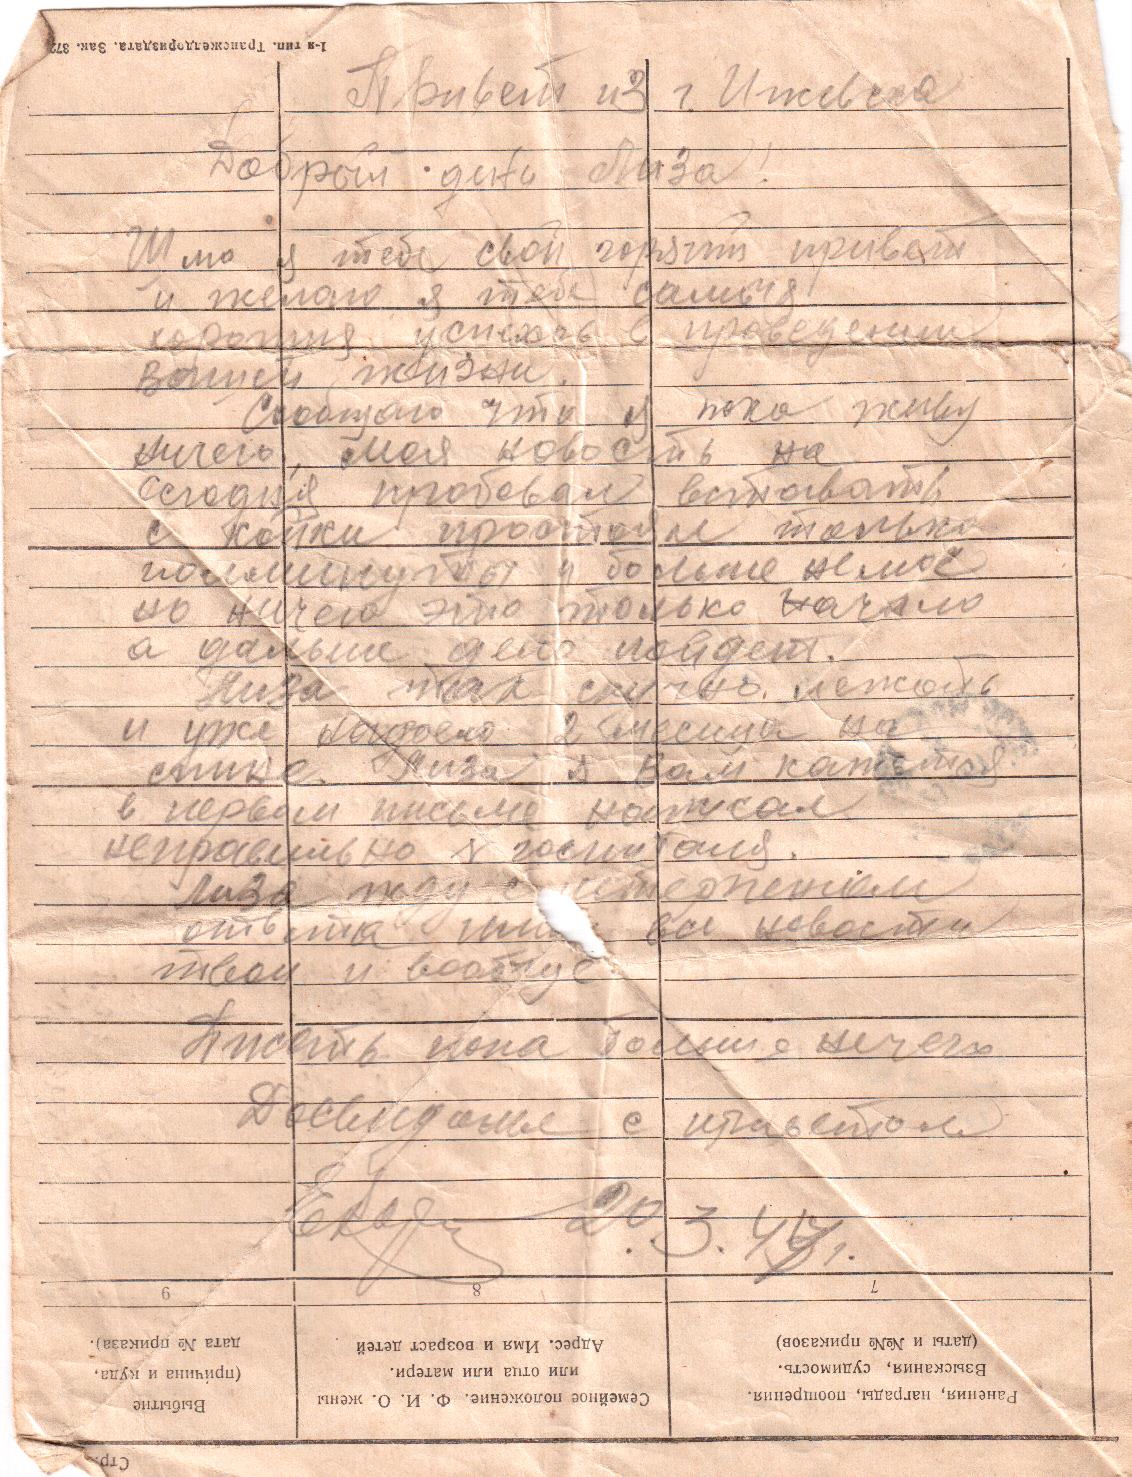 1-я тип. Трансжелдориздата. Зак. 872
Привет из г Ижевска
Добрый день Лиза!
Шлю я тебе свой горячий привет
и желаю я тебе самыя
хорошия успехов в проведении
вашей жизни.
Сообщаю что я пока живу
ничего, моя новость на
сегодня пробовал вставать
с койки простоял только
полминуты и больше немог
но ничего это только начало
а дальше дело пойдет.
Лиза так скучно лежать
и уже надоело 2 месяца на
спине. Лиза я Вам кажется
в первом письме написал
неправильно № госпиталя.
Лиза жду с нетерпением
ответа пиши все новости
твои и вообще
Писать пока больше нечего
Досвидание с приветом
20.3.44 г.
7
8
9
Ранения, награды, поощрения.
Взыскания, судимость.
(даты и №№ приказов)
Семейное положение. Ф. И. О. жены
или отца или матери.
Адрес. Имя и возраст детей
Выбытие
(причина и куда,
дата № приказа).
Стр.